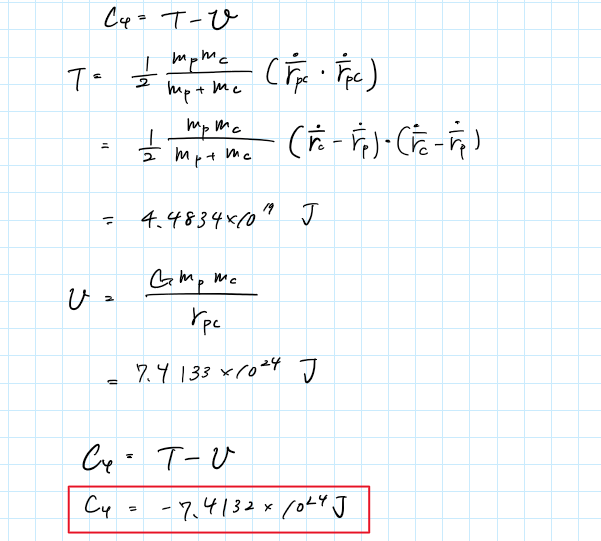 C₄ = T - U
T = 1/2 (m_p m_c)/(m_p + m_c) (ṙ̄_pc · ṙ̄_pc)
= 1/2 (m_p m_c)/(m_p + m_c) (ṙ̄_c - ṙ̄_p) · (ṙ̄_c - ṙ̄_p)
= 4.4834 × 10¹⁹ J
U = (G m_p m_c)/(r_pc)
= 7.4133 × 10²⁴ J
C₄ = T - U
C₄ = -7.4132 × 10²⁴ J